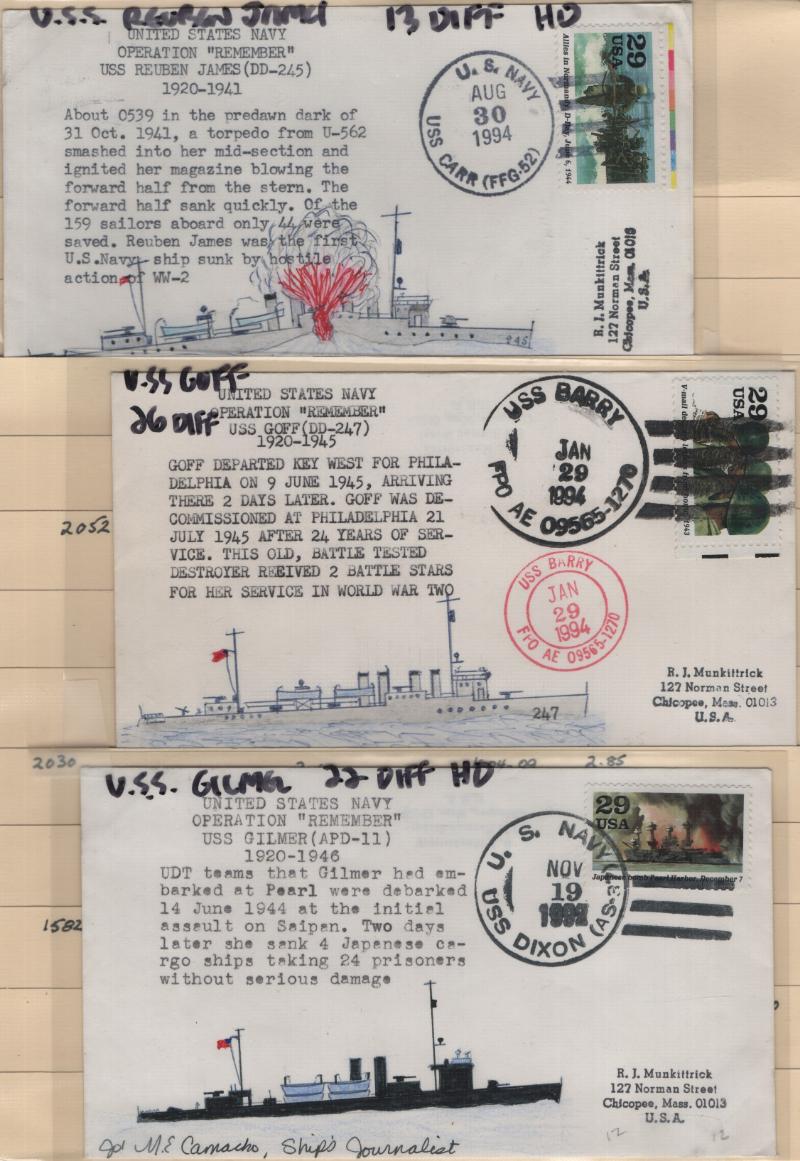 U.S.S. REUBEN JAMES 13 DIFF HD
UNITED STATES NAVY
OPERATION "REMEMBER"
USS REUBEN JAMES(DD-245)
1920-1941
About 0539 in the predawn dark of
31 Oct. 1941, a torpedo from U-562
smashed into her mid-section and
ignited her magazine blowing the
forward half from the stern. The
forward half sank quickly. Of the
159 sailors aboard only 44 were
saved. Reuben James was the first
U.S.Navy ship sunk by hostile
action of WW-2
245
U.S. NAVY
AUG
30
1994
USS CARR (FFG-52)
29
USA
Allies in Normandy, D-Day, June 6, 1944
R. J. Munkittrick
127 Norman Street
Chicopee, Mass. 01013
U.S.A.
U.S.S GOFF
26 DIFF
UNITED STATES NAVY
OPERATION "REMEMBER"
USS GOFF(DD-247)
1920-1945
GOFF DEPARTED KEY WEST FOR PHILA-
DELPHIA ON 9 JUNE 1945, ARRIVING
THERE 2 DAYS LATER. GOFF WAS DE-
COMMISSIONED AT PHILADELPHIA 21
JULY 1945 AFTER 24 YEARS OF SER-
VICE. THIS OLD, BATTLE TESTED
DESTROYER REEIVED 2 BATTLE STARS
FOR HER SERVICE IN WORLD WAR TWO
247
USS BARRY
JAN
29
1994
FPO AE 09565-1270
USS BARRY
JAN
29
1994
FPO AE 09565-1270
29
USA
V-mail
1943
R. J. Munkittrick
127 Norman Street
Chicopee, Mass. 01013
U.S.A.
2052
2030
2.85
U.S.S. GILMER 22 DIFF HD
UNITED STATES NAVY
OPERATION "REMEMBER"
USS GILMER(APD-11)
1920-1946
UDT teams that Gilmer had em-
barked at Pearl were debarked
14 June 1944 at the initial
assault on Saipan. Two days
later she sank 4 Japanese ca-
rgo ships taking 24 prisoners
without serious damage
U. S. NAVY
NOV
19
1992
USS DIXON (AS-37)
29
USA
Japanese bomb Pearl Harbor, December 7
R. J. Munkittrick
127 Norman Street
Chicopee, Mass. 01013
U.S.A.
12 12
1582
M.E Camacho, Ship's Journalist